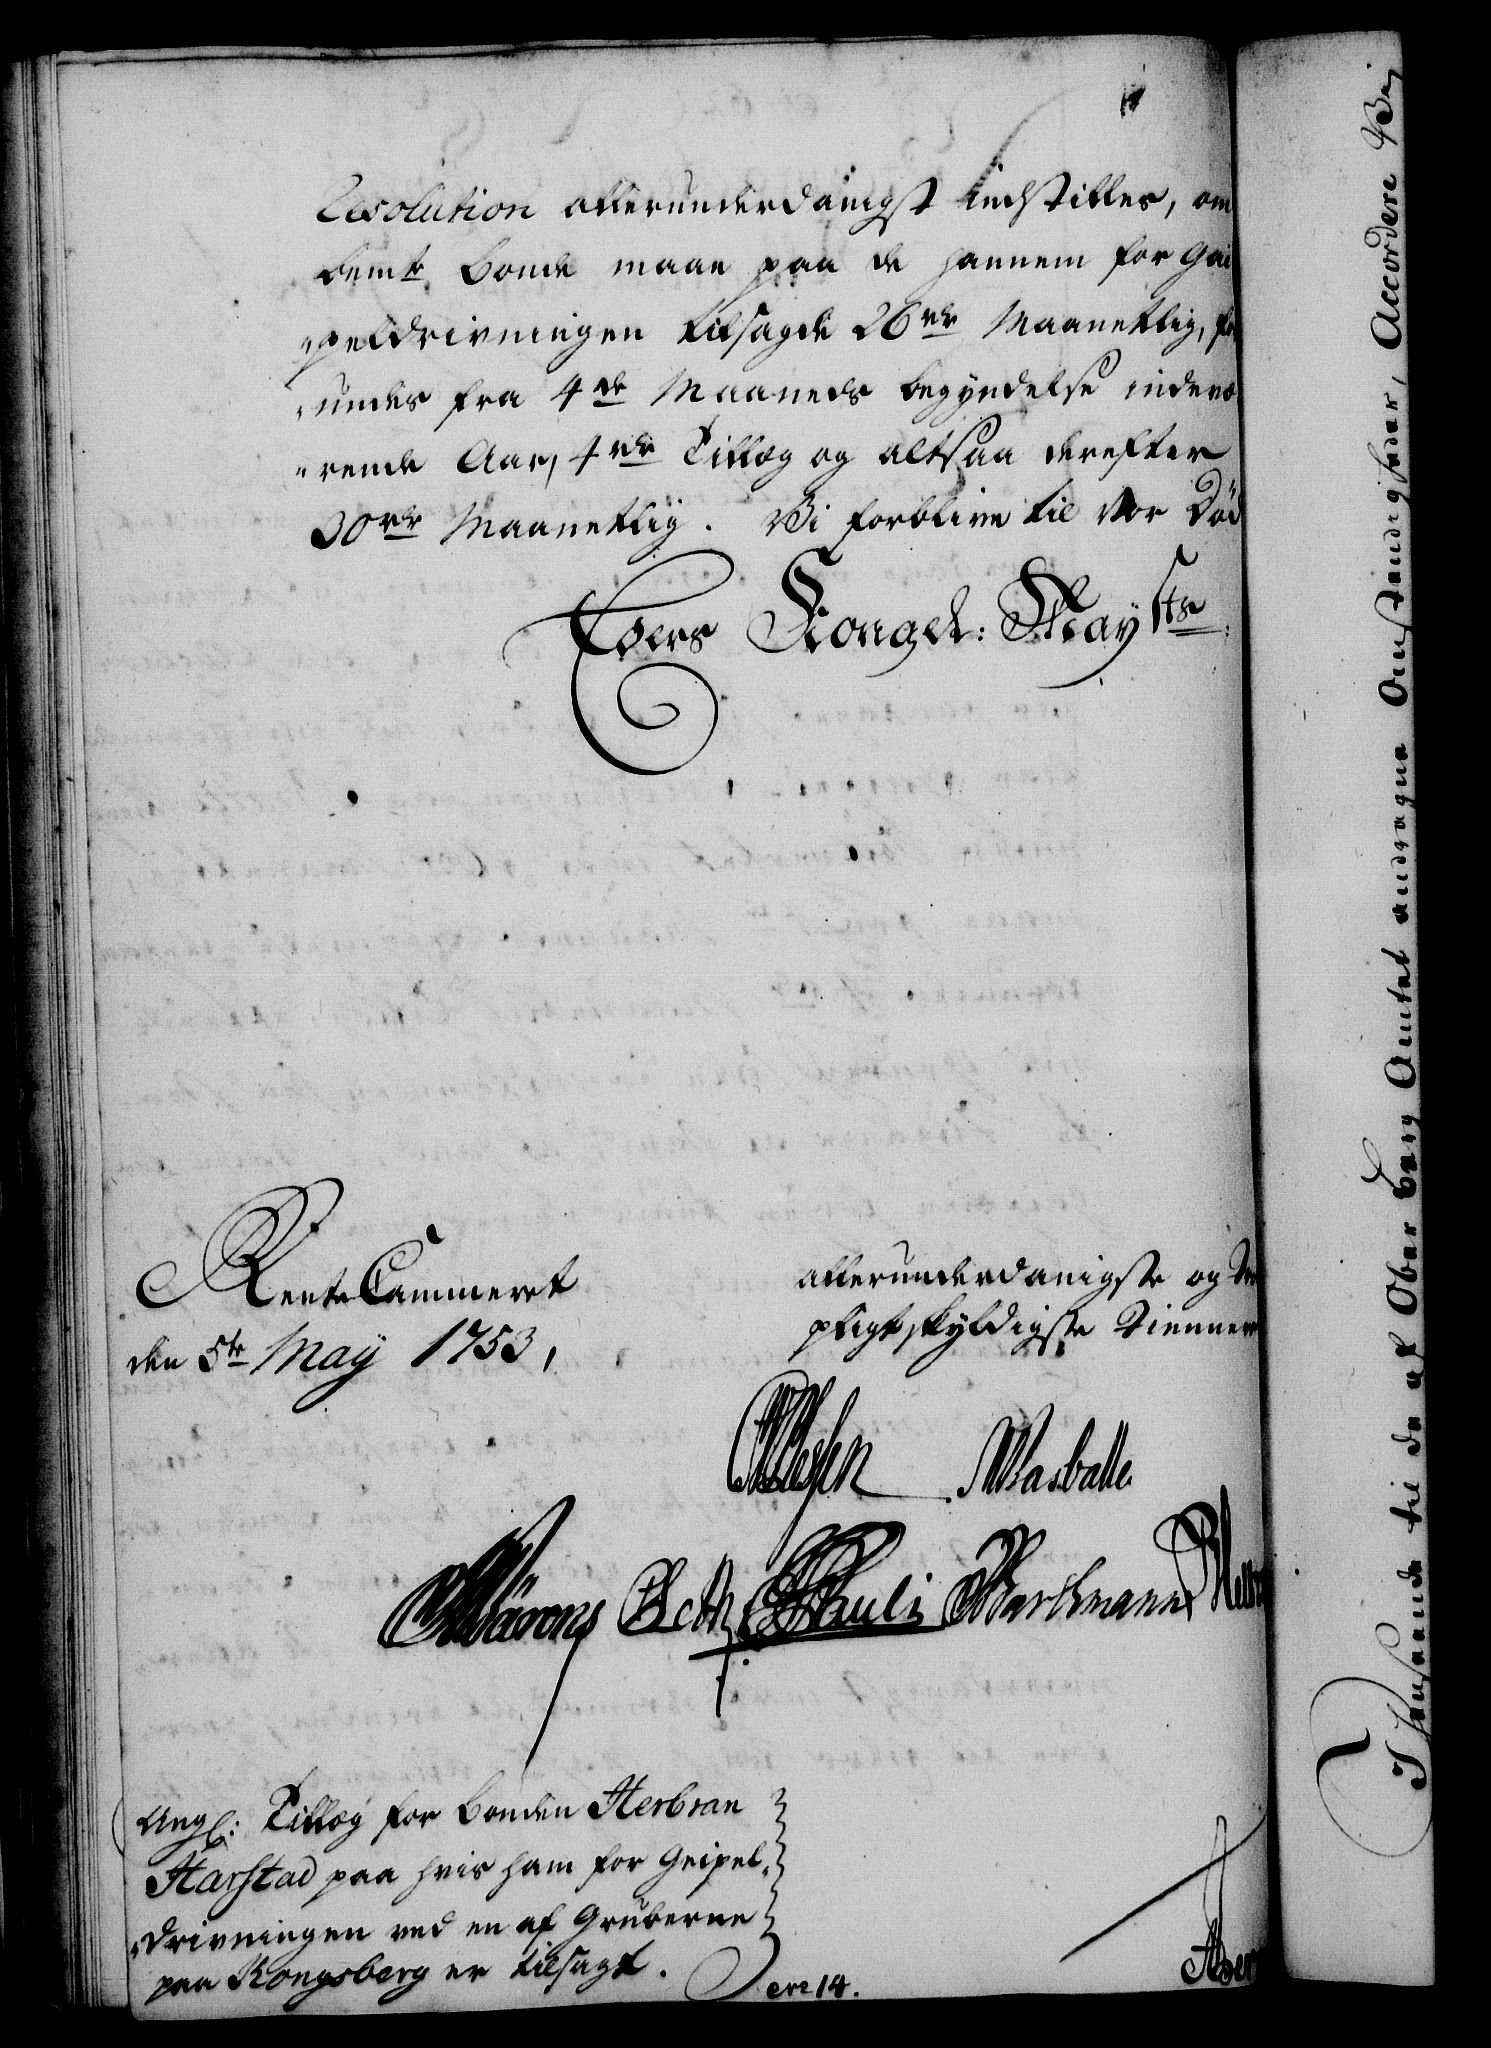 Resolution allerunderdanigst indstilles, om
bemte Bonde maae paa de hannem for Gei
„peldrivningen tilsagde 26 rdr Maanetlig, for
„undes fra 4de Maaneds begyndelse indevæ
„rende Aar, 4 rdr Tillæg og altsaa derefter
30 rdr Maanetlig. Vi forblive til vor Död
Eders Kongel: Mayts:
Rente Cammeret
den 5te May 1753,
allerunderdanigste og
pligtskyldigste Tienner
Ang: Tillæg for bonden Herbran
Harstad paa hvis ham for Geipel-
„drivningen ved en af Gruberne
paa Kongsberg er tilsagt.
No 14.
I Henseende til de af Ober Berg Amtet andragne Omstændigheder, Accordere Vi